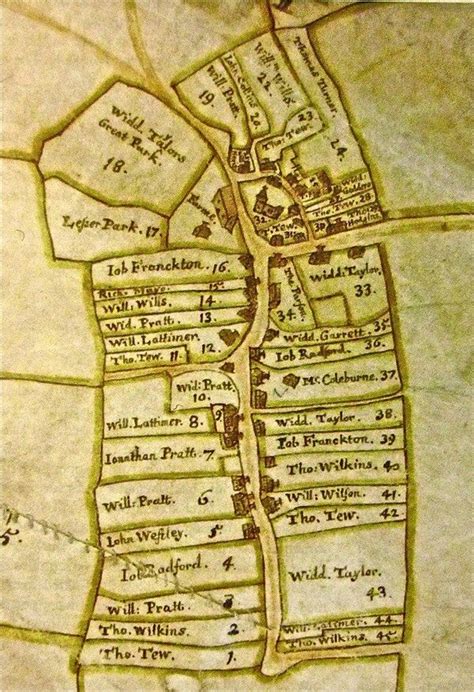 Will: Pratt.
19.
Iohn Collins 20
Will: Wills
22.
Tho: Tew.
23
Thomas Turner.
24.
Widd Taylers
Great Park.
18.
Leser Park. 17.
Home
32
Tho: Tew. 28
Tew.
30
Iob Franckton. 16.
15.
Will: Wills. 14.
Wid. Pratt. 13.
Will. Lattimer.
12.
Tho. Tew. 11
Wid: Pratt.
10.
9
Will. Lattimer. 8
Ionathan Pratt. 7
Will: Pratt. 6
Iohn Westley. 5
Iob Radford 4.
Will: Pratt 3
Tho. Wilkins. 2
Tho. Tew. 1.
34.
Widd: Taylor.
33.
Widd: Garrett. 35
Iob Radford. 36.
Mr. Coleburne. 37
Widd: Taylor 38.
Iob Franckton. 39
Tho: Wilkins. 40
Will: Wilson. 41.
Tho. Tew. 42
Widd. Taylor.
43.
Will: Latimer. 44
Tho: Wilkins. 45
5.